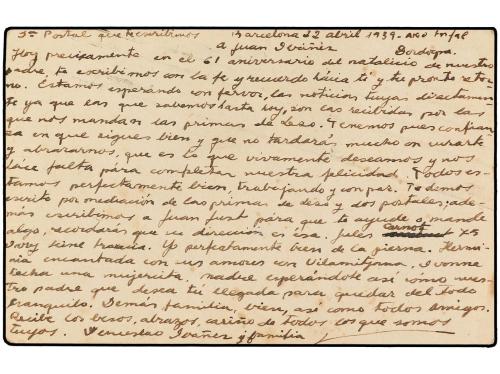 3ª Postal que te escribimos Barcelona 22 abril 1939 - Año Tnfal
a Juan Ibáñez Dordogna.
Hoy precisamente en el 61 aniversario del natalicio de nuestro
padre, te escribimos con la fe y recuerdo hacia ti y tu pronto reto-
no. Estamos esperando con fervor, las noticias tuyas directamen-
te ya que las que sabemos hasta hoy, son las recibidas por las
que nos mandan las primas de Leso. Tenemos pues confian-
za en que sigues bien y que no tardarás mucho en curarte
y abrazarnos, que es lo que vivamente deseamos y nos
hace falta para completar nuestra felicidad. Todos es-
tamos perfectamente bien, trabajando y con paz. Te hemos
escrito por mediación de las primas de Leso y dos postales; ade-
más escribimos a Juan Just para que te ayude o mande
algo, recordarás que su dirección es esa. Jules Carnot 75
Ivory Seine Francia. Yo perfectamente bien de la pierna. Hermi-
nia encantada con sus amores con Vilamitjana. Ivonne
hecha una mujercita, madre esperándote así como nues-
tro padre que desea tu llegada para quedar del todo
tranquilo. Demás familia, bien, así como todos amigos.
Recibe los besos, abrazos, cariño de todos los que somos
tuyos. Wenceslao Ibáñez y familia